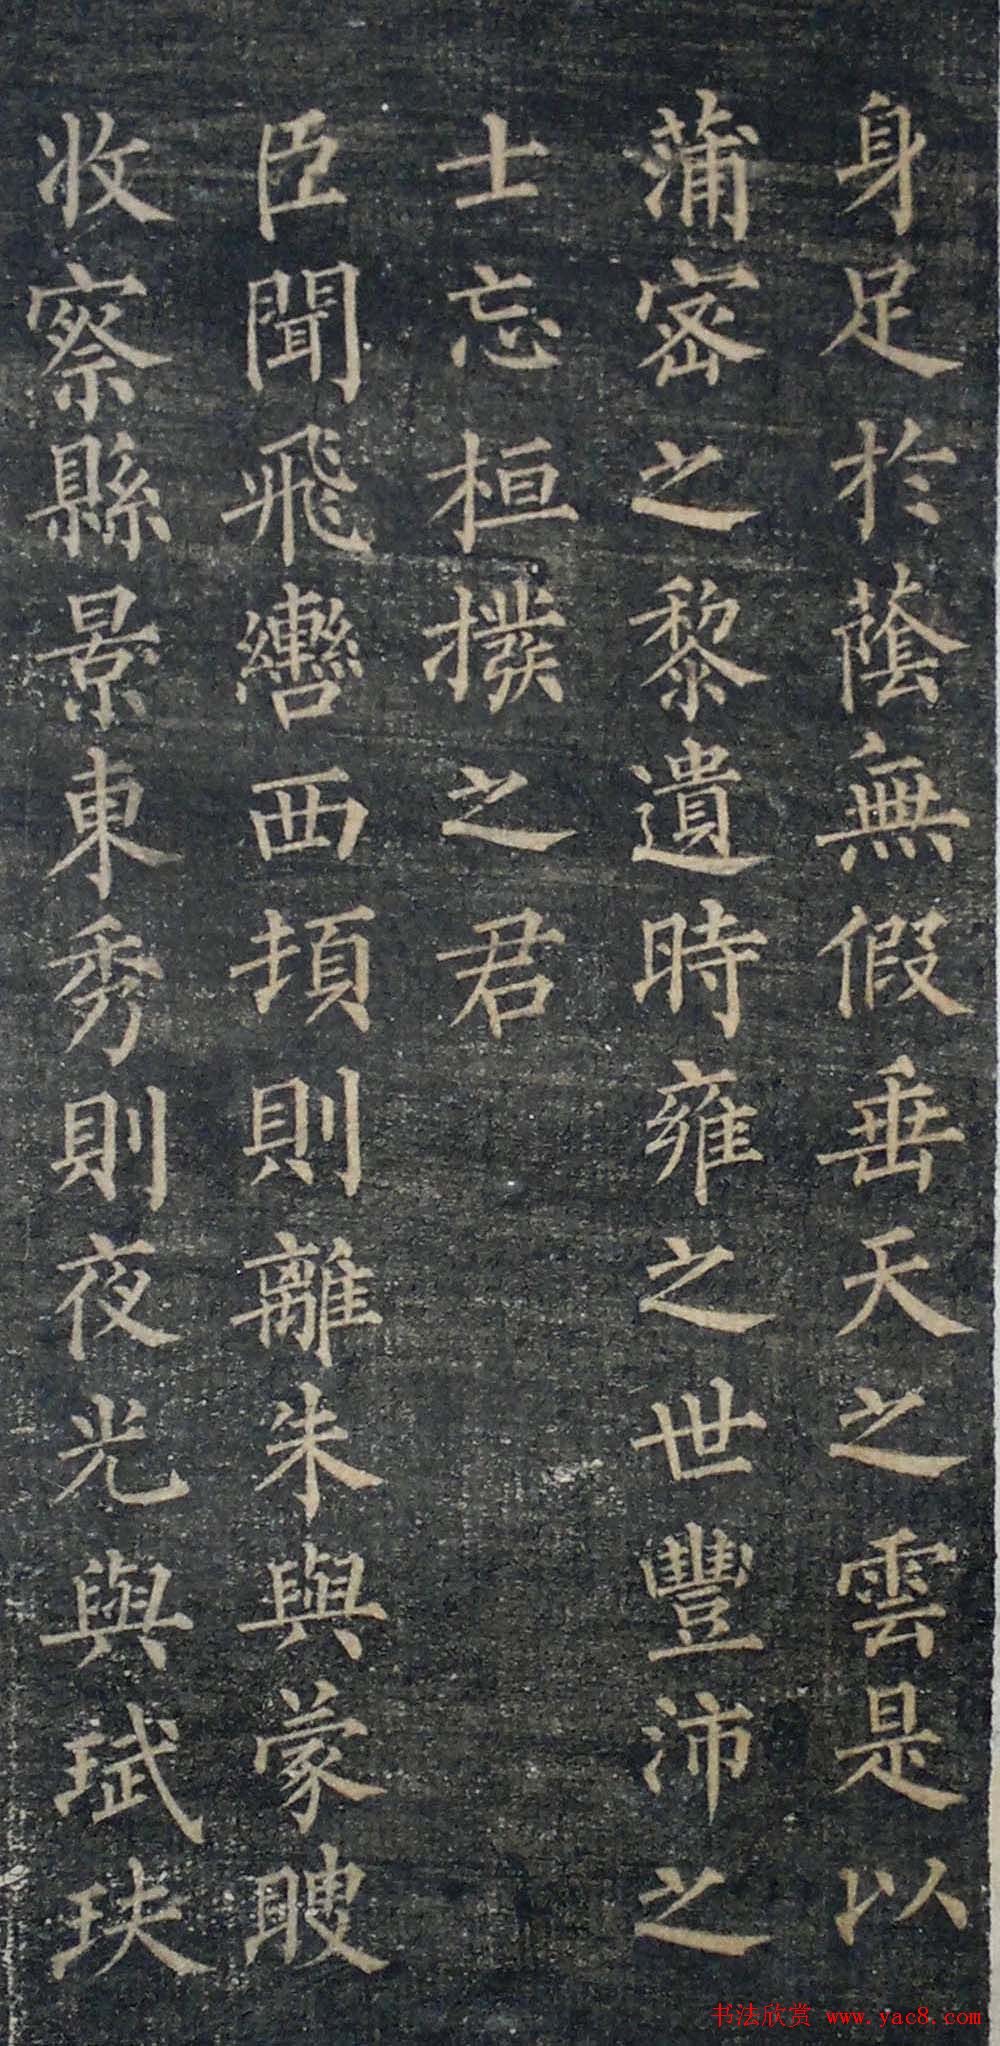 身足於蔭無假垂天之雲是以
蒲密之黎遺時雍之世豐沛之
士忘桓撥之君
臣聞飛轡西頓則離朱與蒙瞍
收察縣景東秀則夜光與珷玞
书法欣赏 www.yac8.com